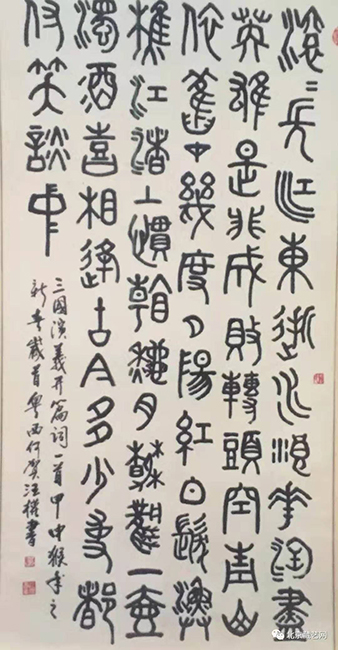 滾〻長江東逝水浪花淘盡
英雄是非成敗轉頭空青山
依舊在幾度夕陽紅白髮漁
樵江渚上慣看龝月春風一壺
濁酒喜相逢古今多少事都
付笑談中
三國演義开篇詞一首甲申猴年之
新春歲首粤西何汪權書